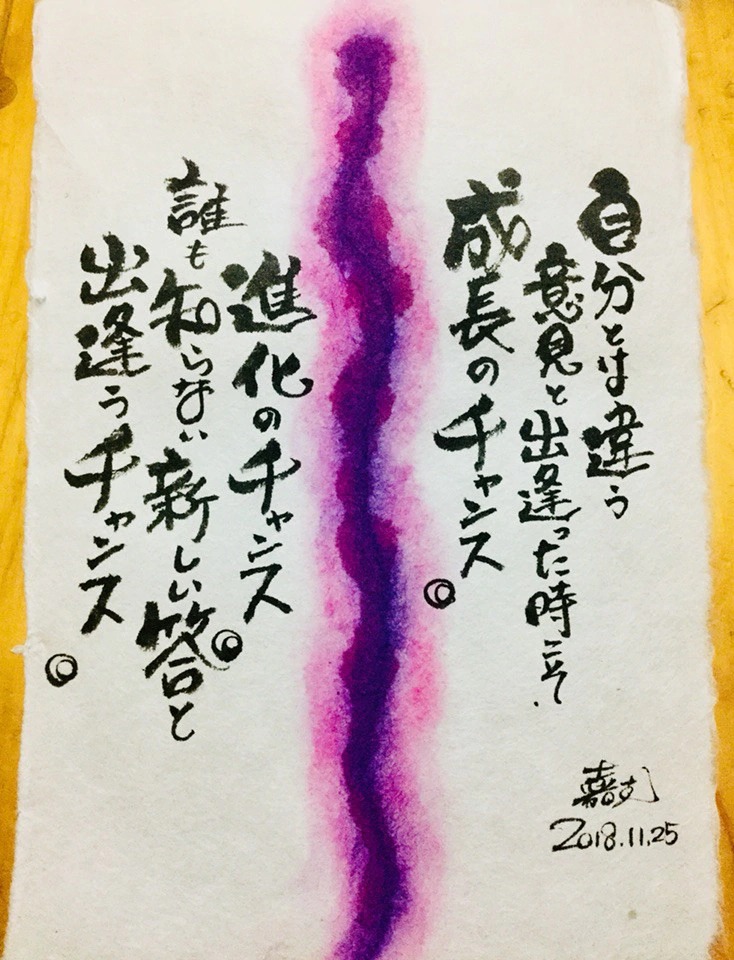 自分とは違う
意見と出逢った時こそ、
成長のチャンス。
進化のチャンス。
誰も知らない新しい答と
出逢うチャンス。
2018.11.25